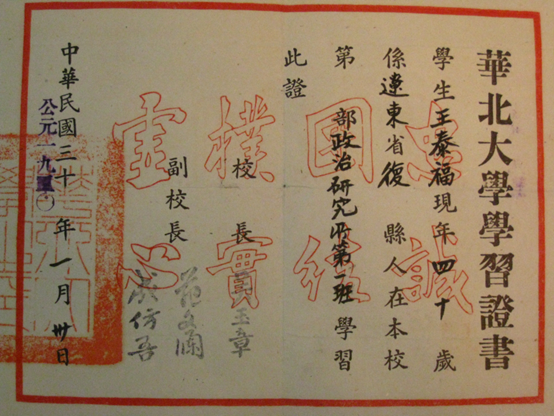 華北大學學習證書
學生王泰福現年四十歲
係遼東省復縣人在本校
第 部政治研究所第 班學習
此證
校長 吳玉章
副校長 范文瀾
成仿吾
中華民國三十 年一月卅日
公元一九五〇
忠誠
團結
樸實
虛心